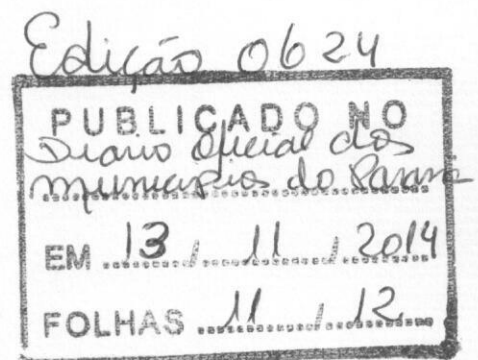 Edição 0624
PUBLICADO NO
Diario Oficial dos
municipios do Paraná
EM 13 / 11 / 2014
FOLHAS 11 / 12